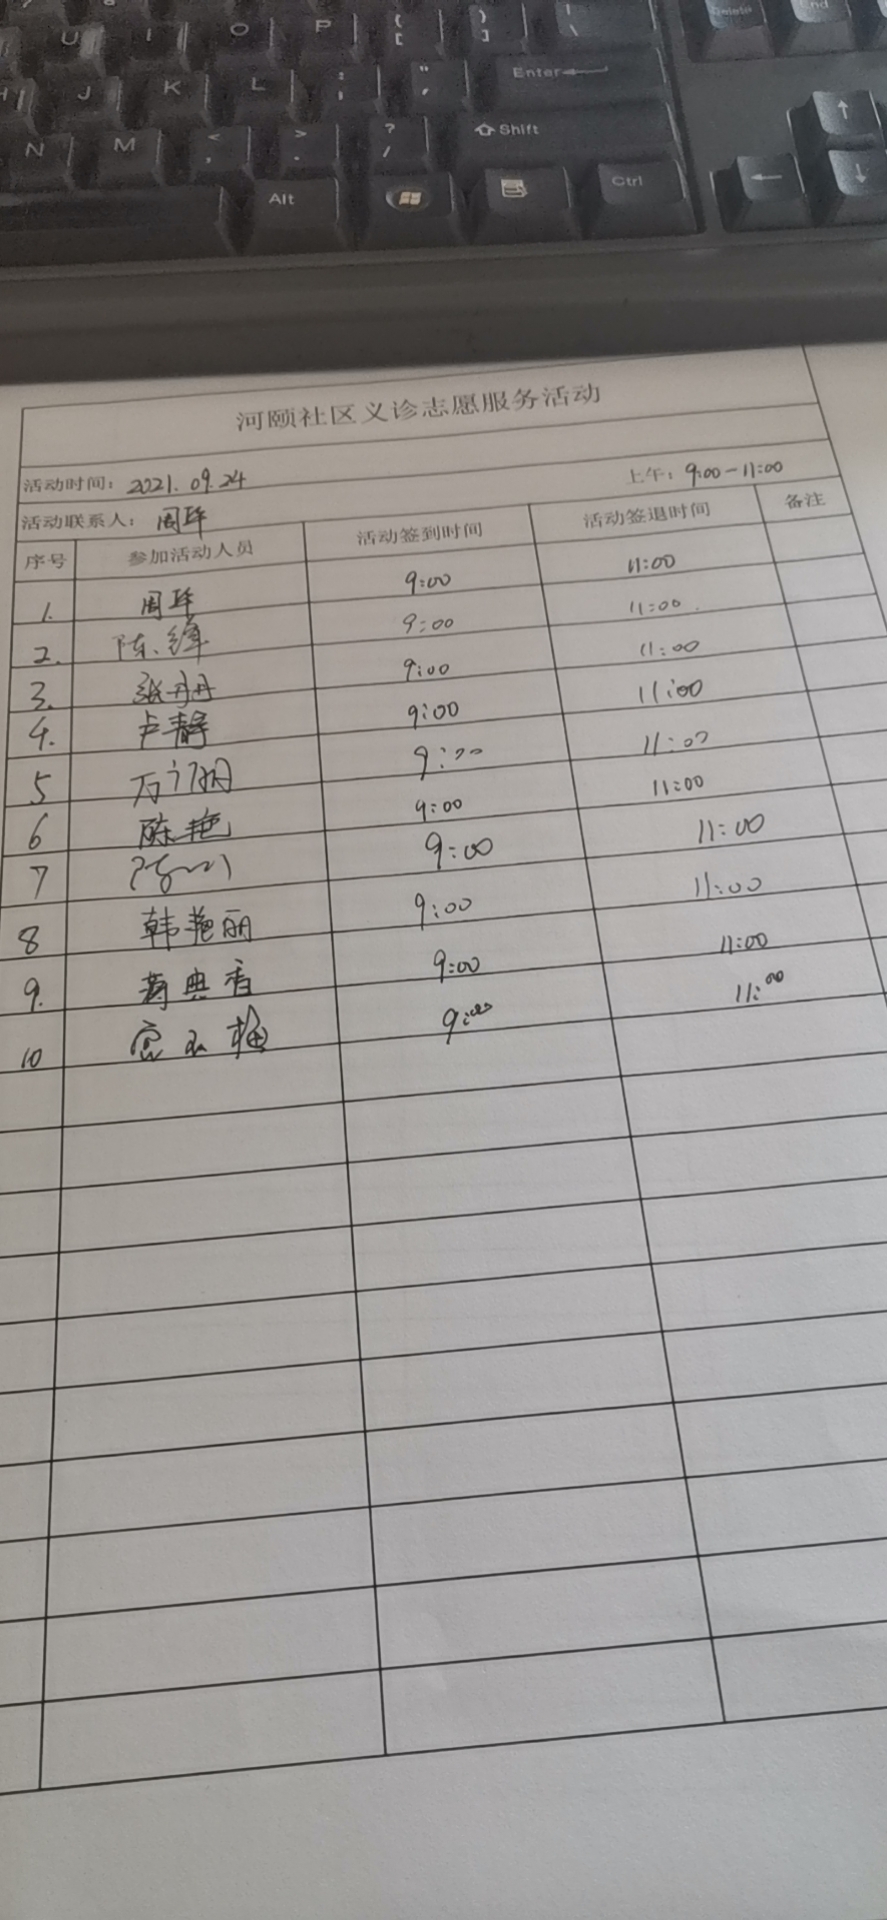 Delete End
U I O P { [ } ] | \
H J K L : ; " ' Enter
N M < , > . ? / Shift
Alt Ctrl
河颐社区义诊志愿服务活动
活动时间: 2021.09.24 上午: 9:00-11:00
活动联系人: 周
序号 参加活动人员 活动签到时间 活动签退时间 备注
1. 周 9:00 11:00
2. 陈 9:00 11:00
3. 张丹丹 9:00 11:00
4. 卢静 9:00 11:00
5 万 9:00 11:00
6 陈艳 9:00 11:00
7 9:00 11:00
8 韩艳丽 9:00 11:00
9. 典香 9:00 11:00
10 梅 9:00 11:00